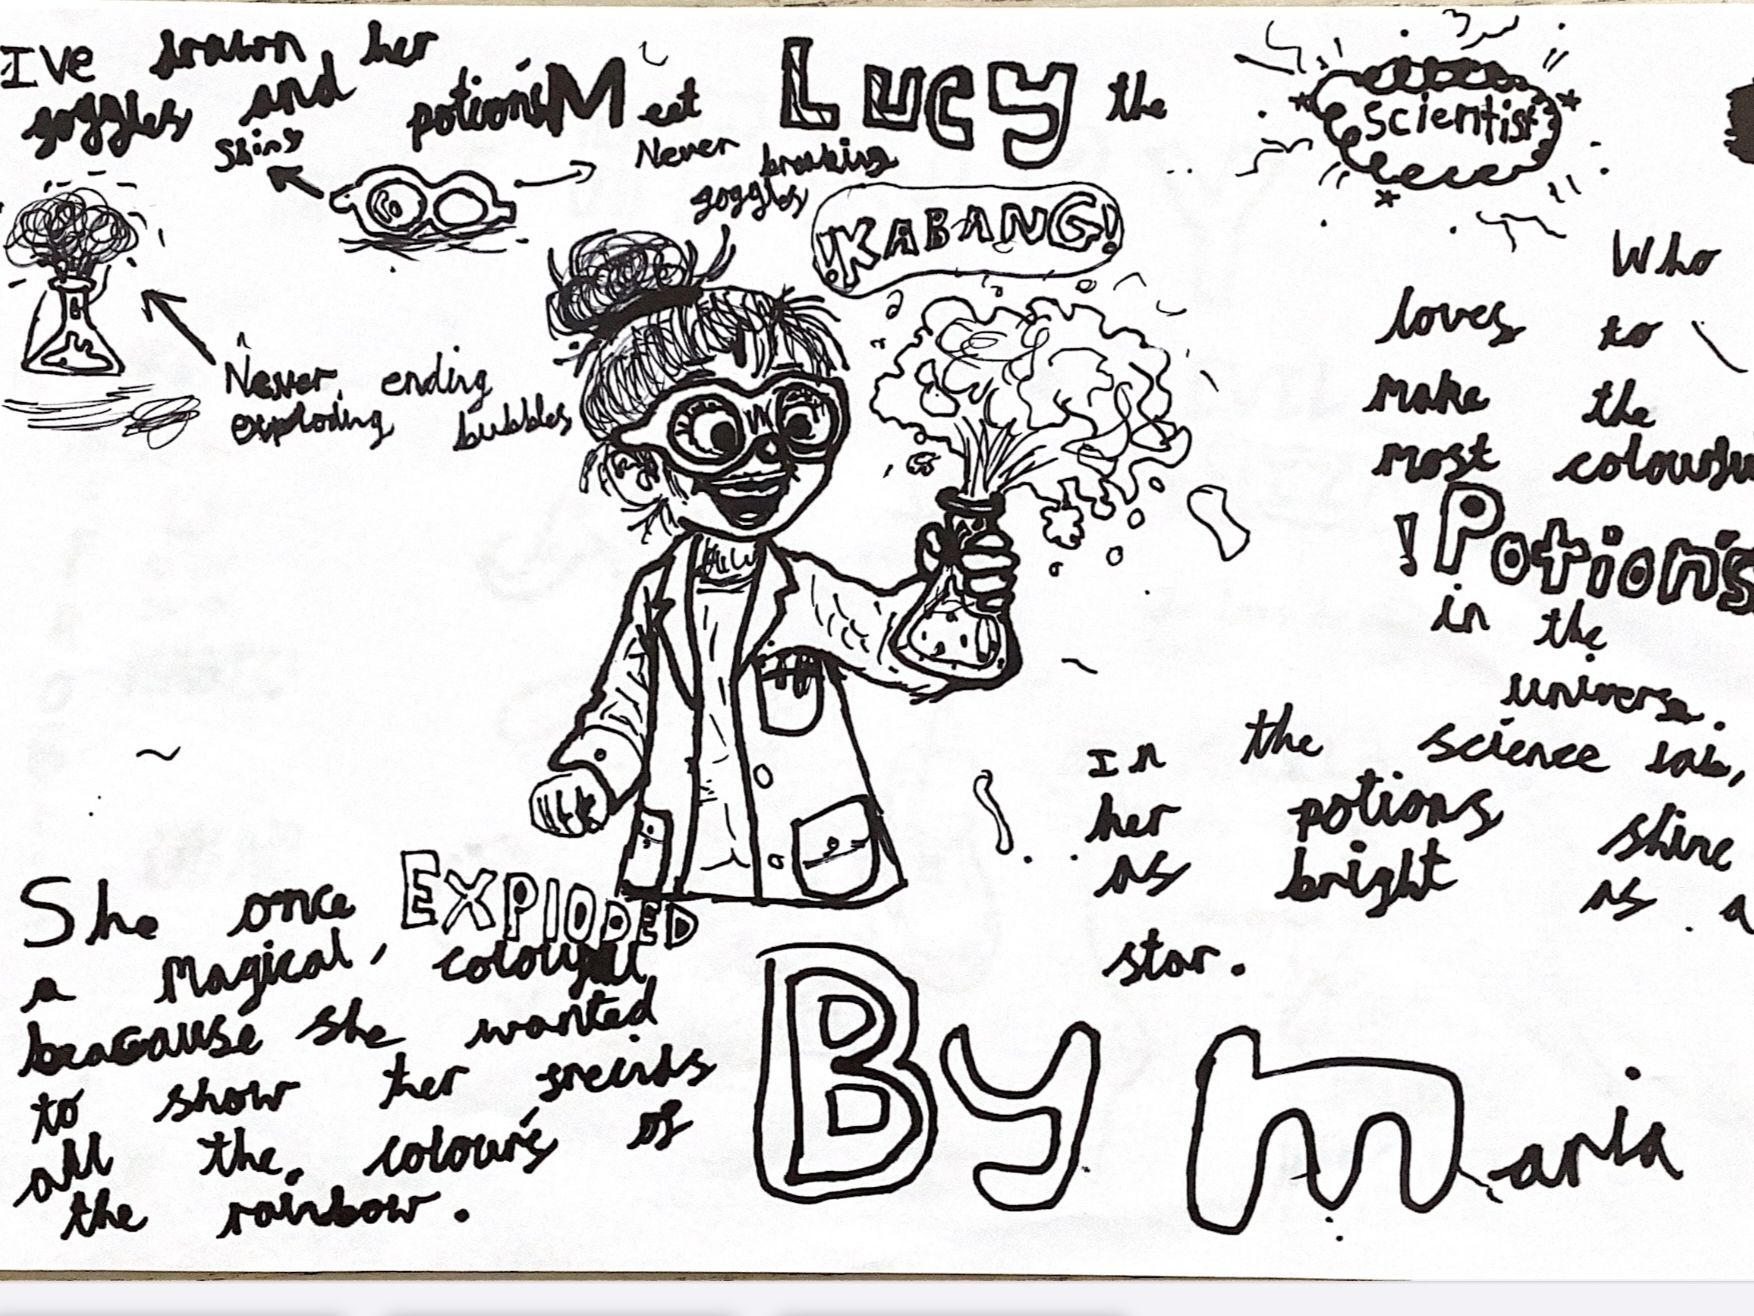 I've drawn her
goggles and potion's
Meet Lucy the Scientist
Shiny
Never breaking
goggles
!KABANG!
Never ending
exploding bubbles
Who
loves to
make the
most
!Potion's
in the
universe.
In the science lab,
her potions shine
as bright as a
star.
She once EXPlODED
a Magical,
beacause she wanted
to show her
all the colour's of
the rainbow.
By Maria